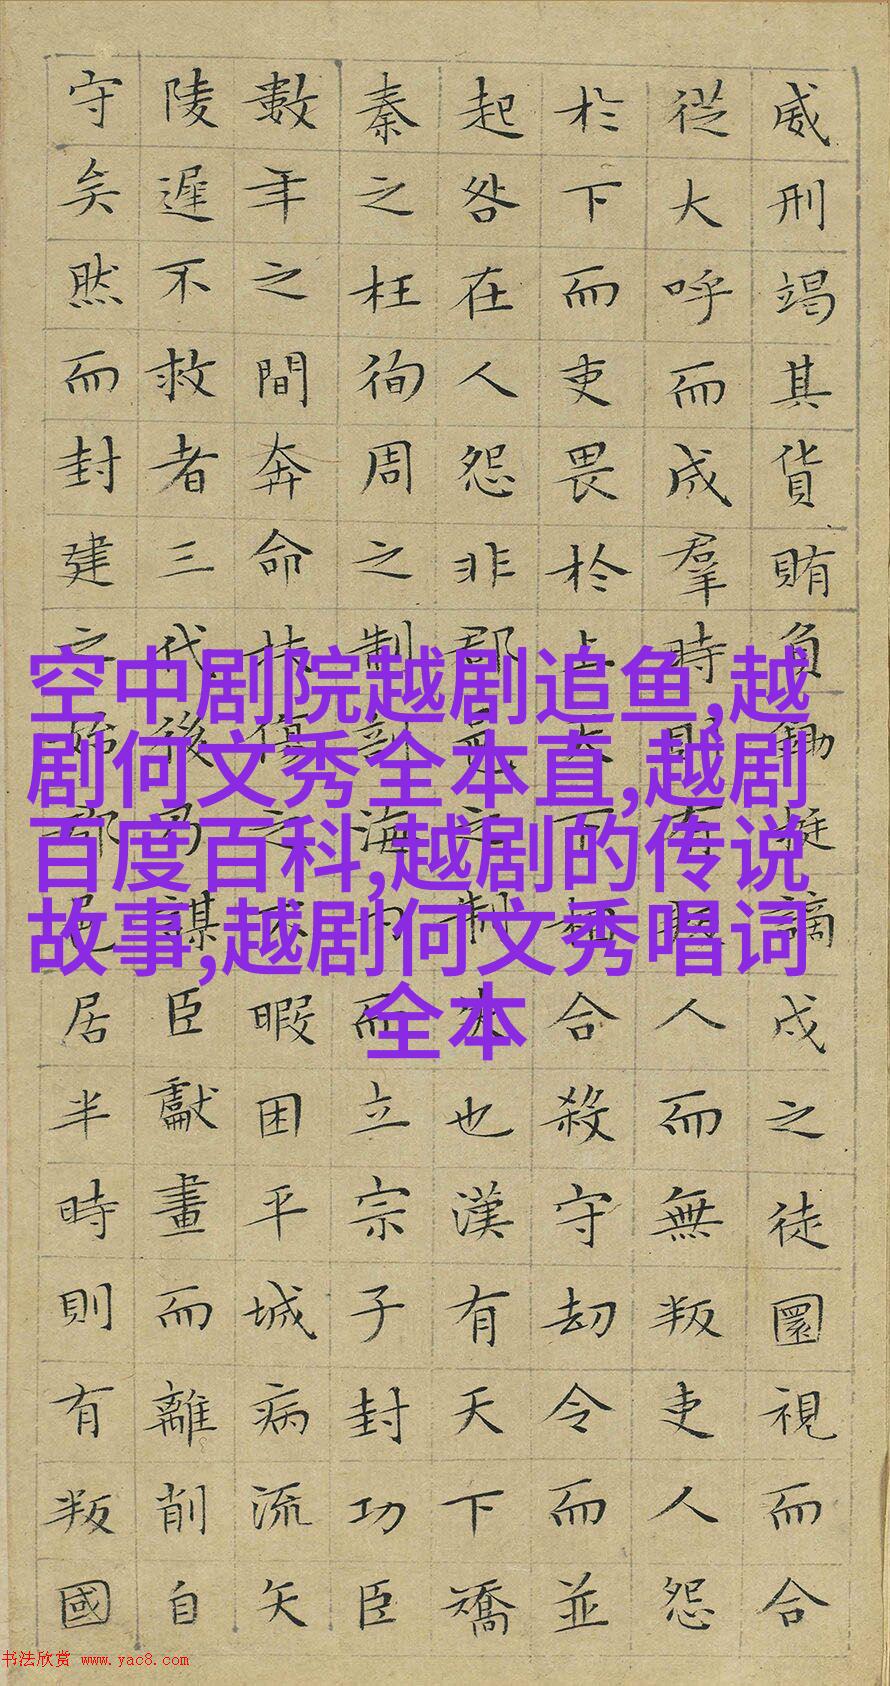 威刑竭其貨賄負鋤梃謫戍之徒圜視而合
從大呼而成羣時則有叛人而無叛吏人怨
於下而吏畏於上天下相合殺守劫令而並
起咎在人怨非郡邑之制失也漢有天下矯
秦之枉徇周之制剖海內而立宗子封功臣
數年之間奔命扶傷之不暇困平城病流矢
陵遲不救者三代後乃謀臣獻畫而離削自
守矣然而封建之始郡邑居半時則有叛國
空中剧院越剧追鱼,越
剧何文秀全本直,越剧
百度百科,越剧的传说
故事,越剧何文秀唱词
全本
书法欣赏 www.yac8.com